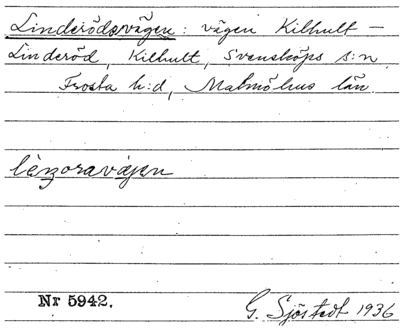 Linderödsvägen: vägen Kilhult –
Linderöd, Kilhult, Svensköps s:n
Frosta h:d, Malmöhus län.
lèn̥oravàjen
Nr 5942.
G. Sjöstedt 1936